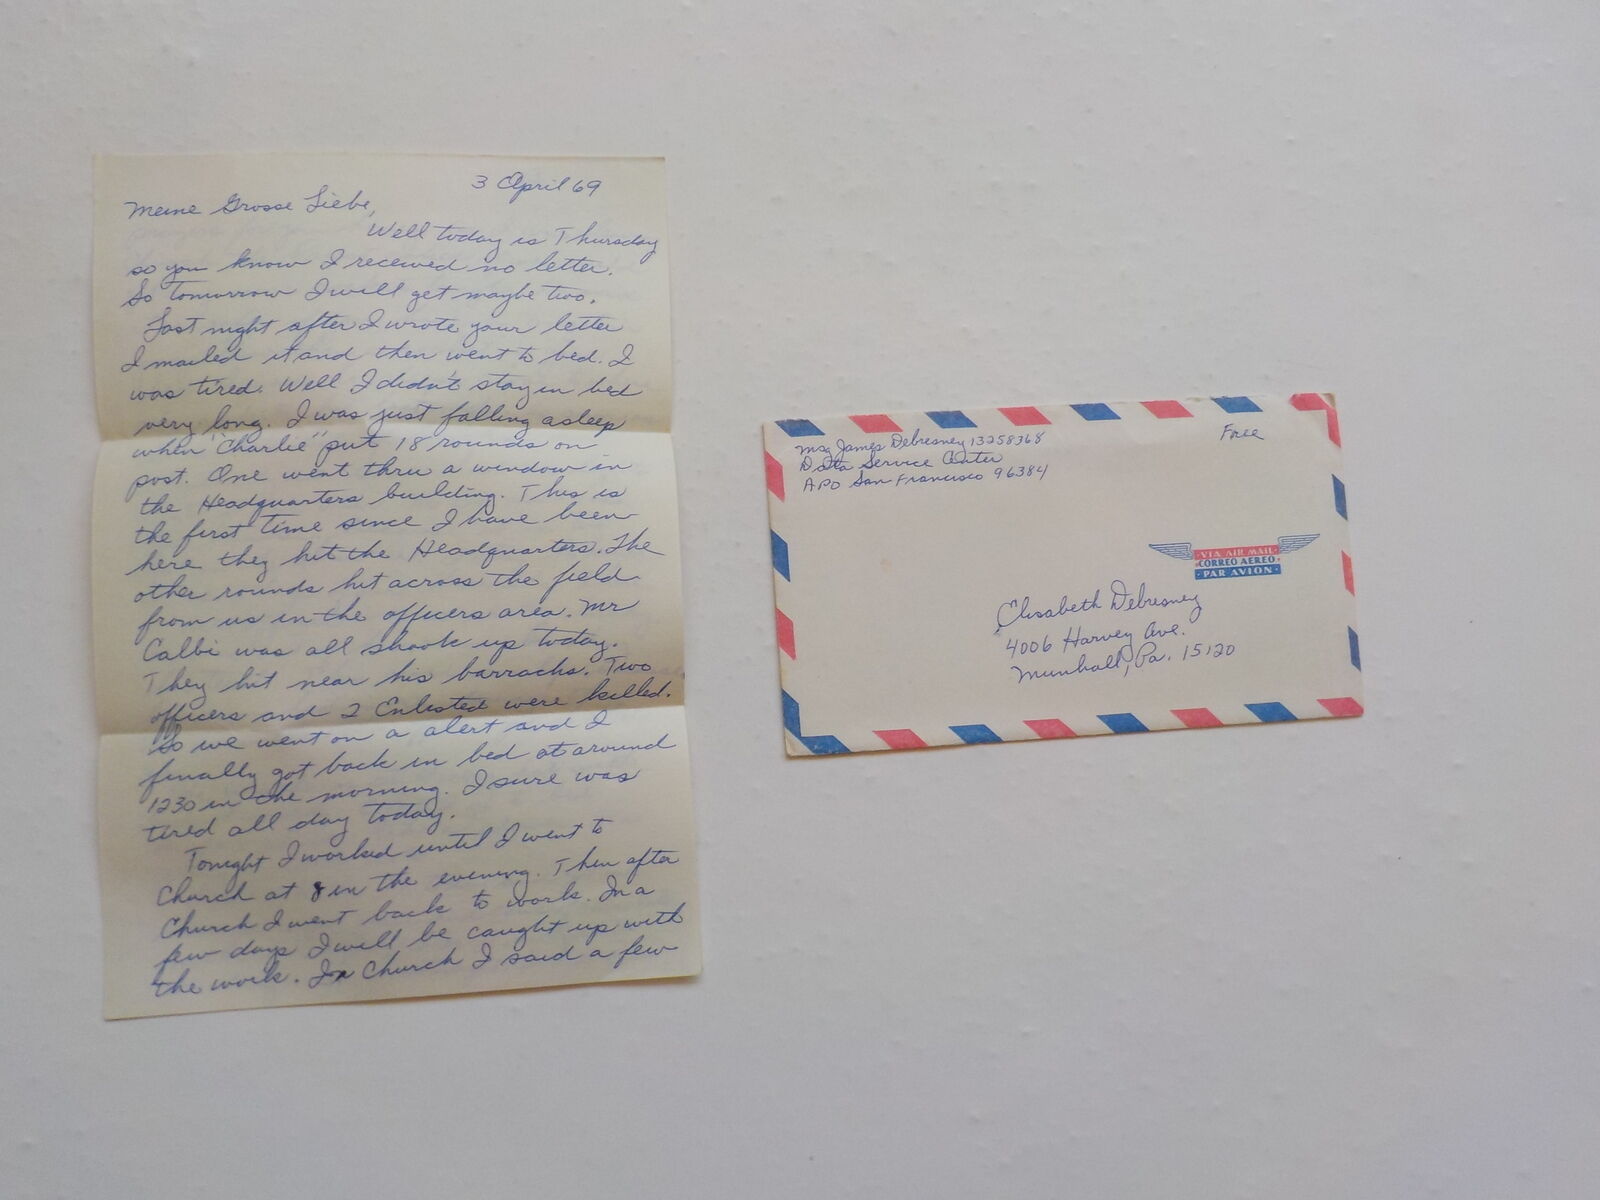 3 April 69
Meine Grosse Liebe,
Well today is Thursday
so you know I received no letter.
So tomorrow I will get maybe two.
Last night after I wrote your letter
I mailed it and then went to bed. I
was tired. Well I didn't stay in bed
very long. I was just falling asleep
when "Charlie" put 18 rounds on
post. One went thru a window in
the Headquarters building. This is
the first time since I have been
here they hit the Headquarters. The
other rounds hit across the field
from us in the officers area. Mr
Calbi was all shook up today.
They hit near his barracks. Two
officers and 2 Enlisted were killed.
So we went on a alert and I
finally got back in bed at around
1230 in the morning. I sure was
tired all day today.
Tonight I worked until I went to
Church at 8 in the evening. Then after
Church I went back to work. In a
few days I will be caught up with
the work. In Church I said a few
MSG James Debresney 13258368
Data Service Center
APO San Francisco 96384
Free
VIA AIR MAIL
CORREO AEREO
PAR AVION
Elisabeth Debresney
4006 Harvey Ave.
Munhall, Pa. 15120